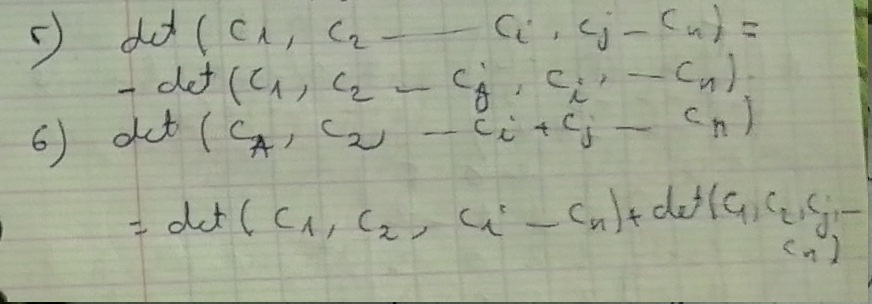 5) det ( C1, C2 —— Ci, Cj — Cn) =
- det (C1, C2 — Cj, Ci, — Cn).
6) det ( C1, C2, — Ci + Cj — Cn)
= det ( C1, C2, Ci — Cn) + det (C1, C2, Cj, —
Cn)